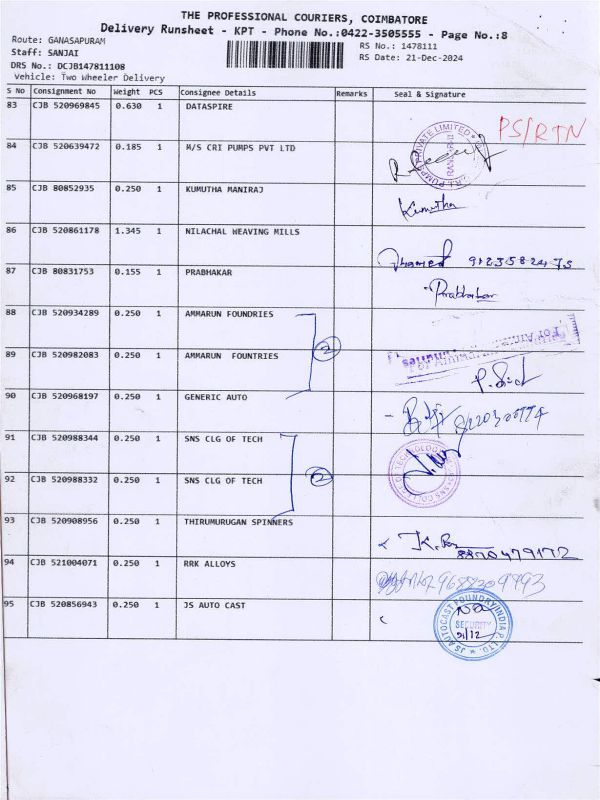 THE PROFESSIONAL COURIERS, COIMBATORE
Delivery Runsheet - KPT - Phone No.:0422-3505555 - Page No.:8
Route: GANASAPURAM
Staff: SANJAI
DRS No.: DCJB147811108
Vehicle: Two Wheeler Delivery
RS No.: 1478111
RS Date: 21-Dec-2024
S No Consignment No Weight PCS Consignee Details Remarks Seal & Signature
83 CJB 520969845 0.630 1 DATASPIRE PS/RTN
84 CJB 520639472 0.185 1 M/S CRI PUMPS PVT LTD
85 CJB 80852935 0.250 1 KUMUTHA MANIRAJ Kumutha
86 CJB 520861178 1.345 1 NILACHAL WEAVING MILLS
87 CJB 80831753 0.155 1 PRABHAKAR Prabhakar
88 CJB 520934289 0.250 1 AMMARUN FOUNDRIES
2
89 CJB 520982083 0.250 1 AMMARUN FOUNTRIES
90 CJB 520968197 0.250 1 GENERIC AUTO
91 CJB 520988344 0.250 1 SNS CLG OF TECH
2
92 CJB 520988332 0.250 1 SNS CLG OF TECH
93 CJB 520908956 0.250 1 THIRUMURUGAN SPINNERS
8870479172
94 CJB 521004071 0.250 1 RRK ALLOYS
95 CJB 520856943 0.250 1 JS AUTO CAST
JS AUTOCAST FOUNDRY INDIA P. LTD.
SECURITY
21/12